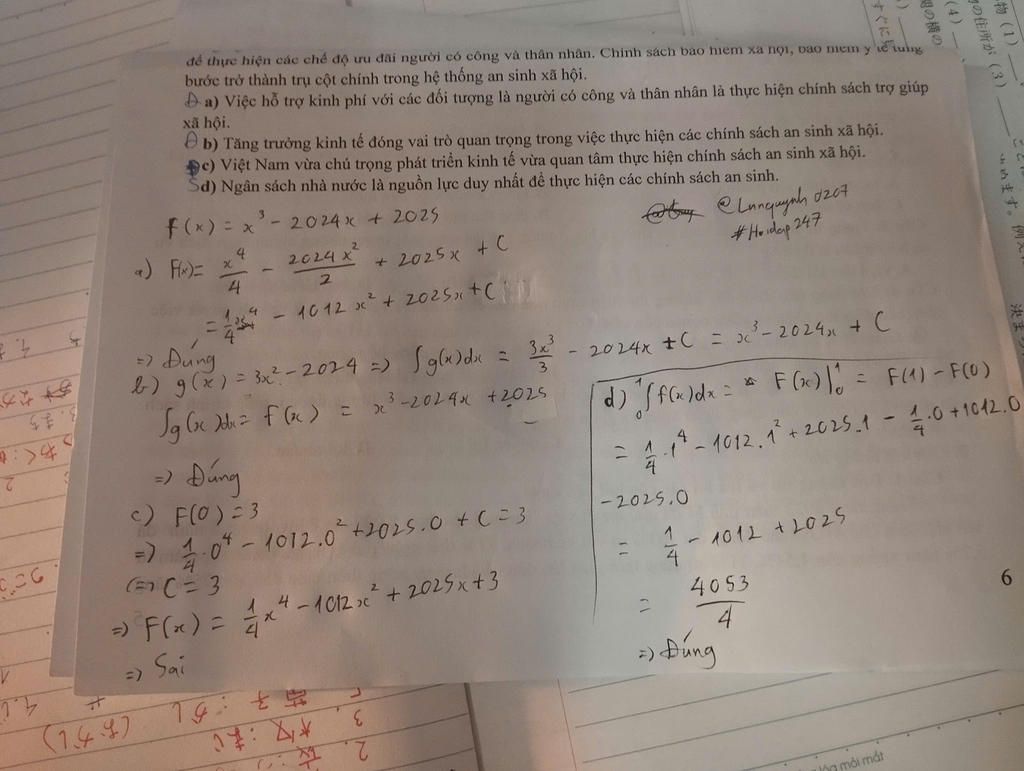 để thực hiện các chế độ ưu đãi người có công và thân nhân. Chính sách bảo hiểm xã hội, bảo hiểm y tế từng
bước trở thành trụ cột chính trong hệ thống an sinh xã hội.
Đ a) Việc hỗ trợ kinh phí với các đối tượng là người có công và thân nhân là thực hiện chính sách trợ giúp
xã hội.
Đ b) Tăng trưởng kinh tế đóng vai trò quan trọng trong việc thực hiện các chính sách an sinh xã hội.
Đ c) Việt Nam vừa chú trọng phát triển kinh tế vừa quan tâm thực hiện chính sách an sinh xã hội.
S d) Ngân sách nhà nước là nguồn lực duy nhất để thực hiện các chính sách an sinh.
@Lnnquynh0207
#Hoidap247
f(x) = x³ - 2024x + 2025
a) F(x) = x⁴/4 - 2024x²/2 + 2025x + C
= 1/4 x⁴ - 1012x² + 2025x + C
=> Đúng
b) g(x) = 3x² - 2024 => ∫g(x)dx = 3x³/3 - 2024x + C = x³ - 2024x + C
∫g(x)dx = f(x) = x³ - 2024x + 2025
=> Đúng
c) F(0) = 3
=> 1/4 . 0⁴ - 1012.0² + 2025.0 + C = 3
<=> C = 3
=> F(x) = 1/4 x⁴ - 1012x² + 2025x + 3
=> Sai
d) ₀∫¹ f(x)dx = F(x)|₀¹ = F(1) - F(0)
= 1/4 . 1⁴ - 1012.1² + 2025.1 - 1/4 . 0 + 1012.0
- 2025.0
= 1/4 - 1012 + 2025
= 4053/4
=> Đúng
6